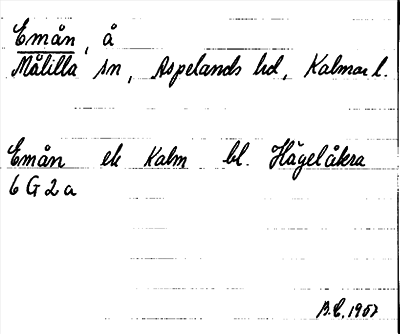 Emån, å
Målilla sn, Aspelands hd, Kalmar l.
Emån ek Kalm bl. Hägelåkra
6 G 2 a